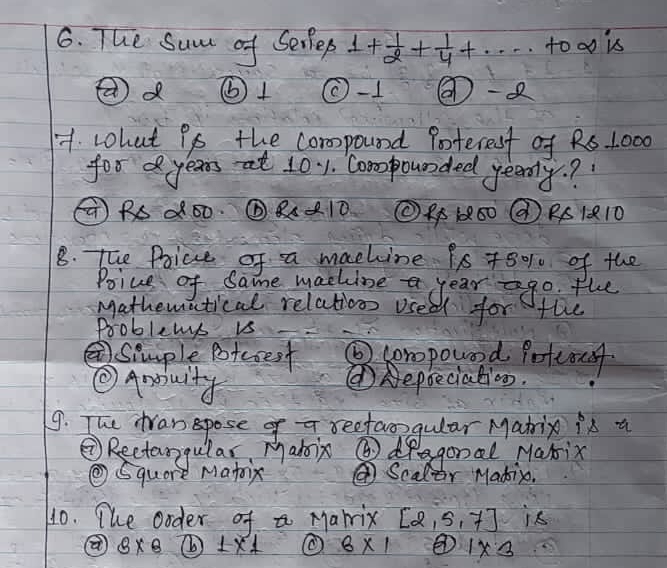 6. The Sum of Series 1 + 1/2 + 1/4 + .... to ∞ is
(a) 2 (b) 1 (c) -1 (d) -2
7. what is the Compound interest of RS 1000
for 2 years at 10%. Compounded yearly.?
(a) RS 200. (b) RS 210 (c) RS 1200 (d) RS 1210
8. The Price of a machine is 75% of the
Price of Same machine a year ago. the
Mathematical relation used for the
Problems is - - - -
(a) Simple Interest (b) Compound interest.
(c) Annuity (d) Depreciation.
9. The transpose of a rectangular Matrix is a
(a) Rectangular Matrix (b) diagonal Matrix
(c) Square Matrix (d) Scalar Matrix.
10. The order of a Matrix [2, 5, 7] is
(a) 3×3 (b) 1×1 (c) 3×1 (d) 1×3